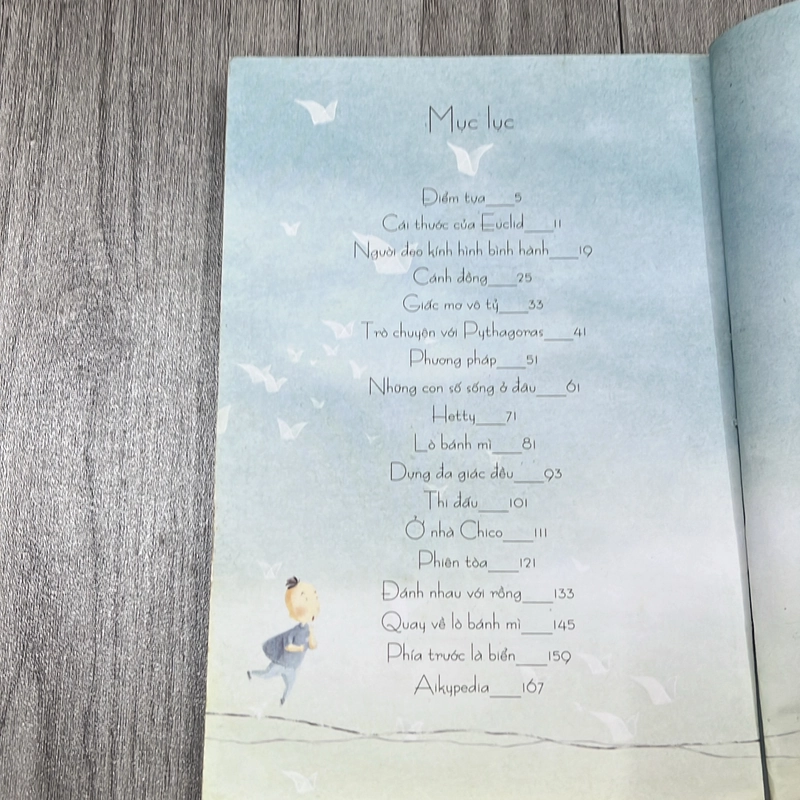 Mục lục
Điểm tựa____5
Cái thước của Euclid____11
Người đeo kính hình bình hành____19
Cánh đồng____25
Giấc mơ vô tỷ____33
Trò chuyện với Pythagoras____41
Phương pháp____51
Những con số sống ở đâu____61
Hetty____71
Lò bánh mì____81
Dựng đa giác đều____93
Thi đấu____101
Ở nhà Chico____111
Phiên tòa____121
Đánh nhau với rồng____133
Quay về lò bánh mì____145
Phía trước là biển____159
Aikypedia____167